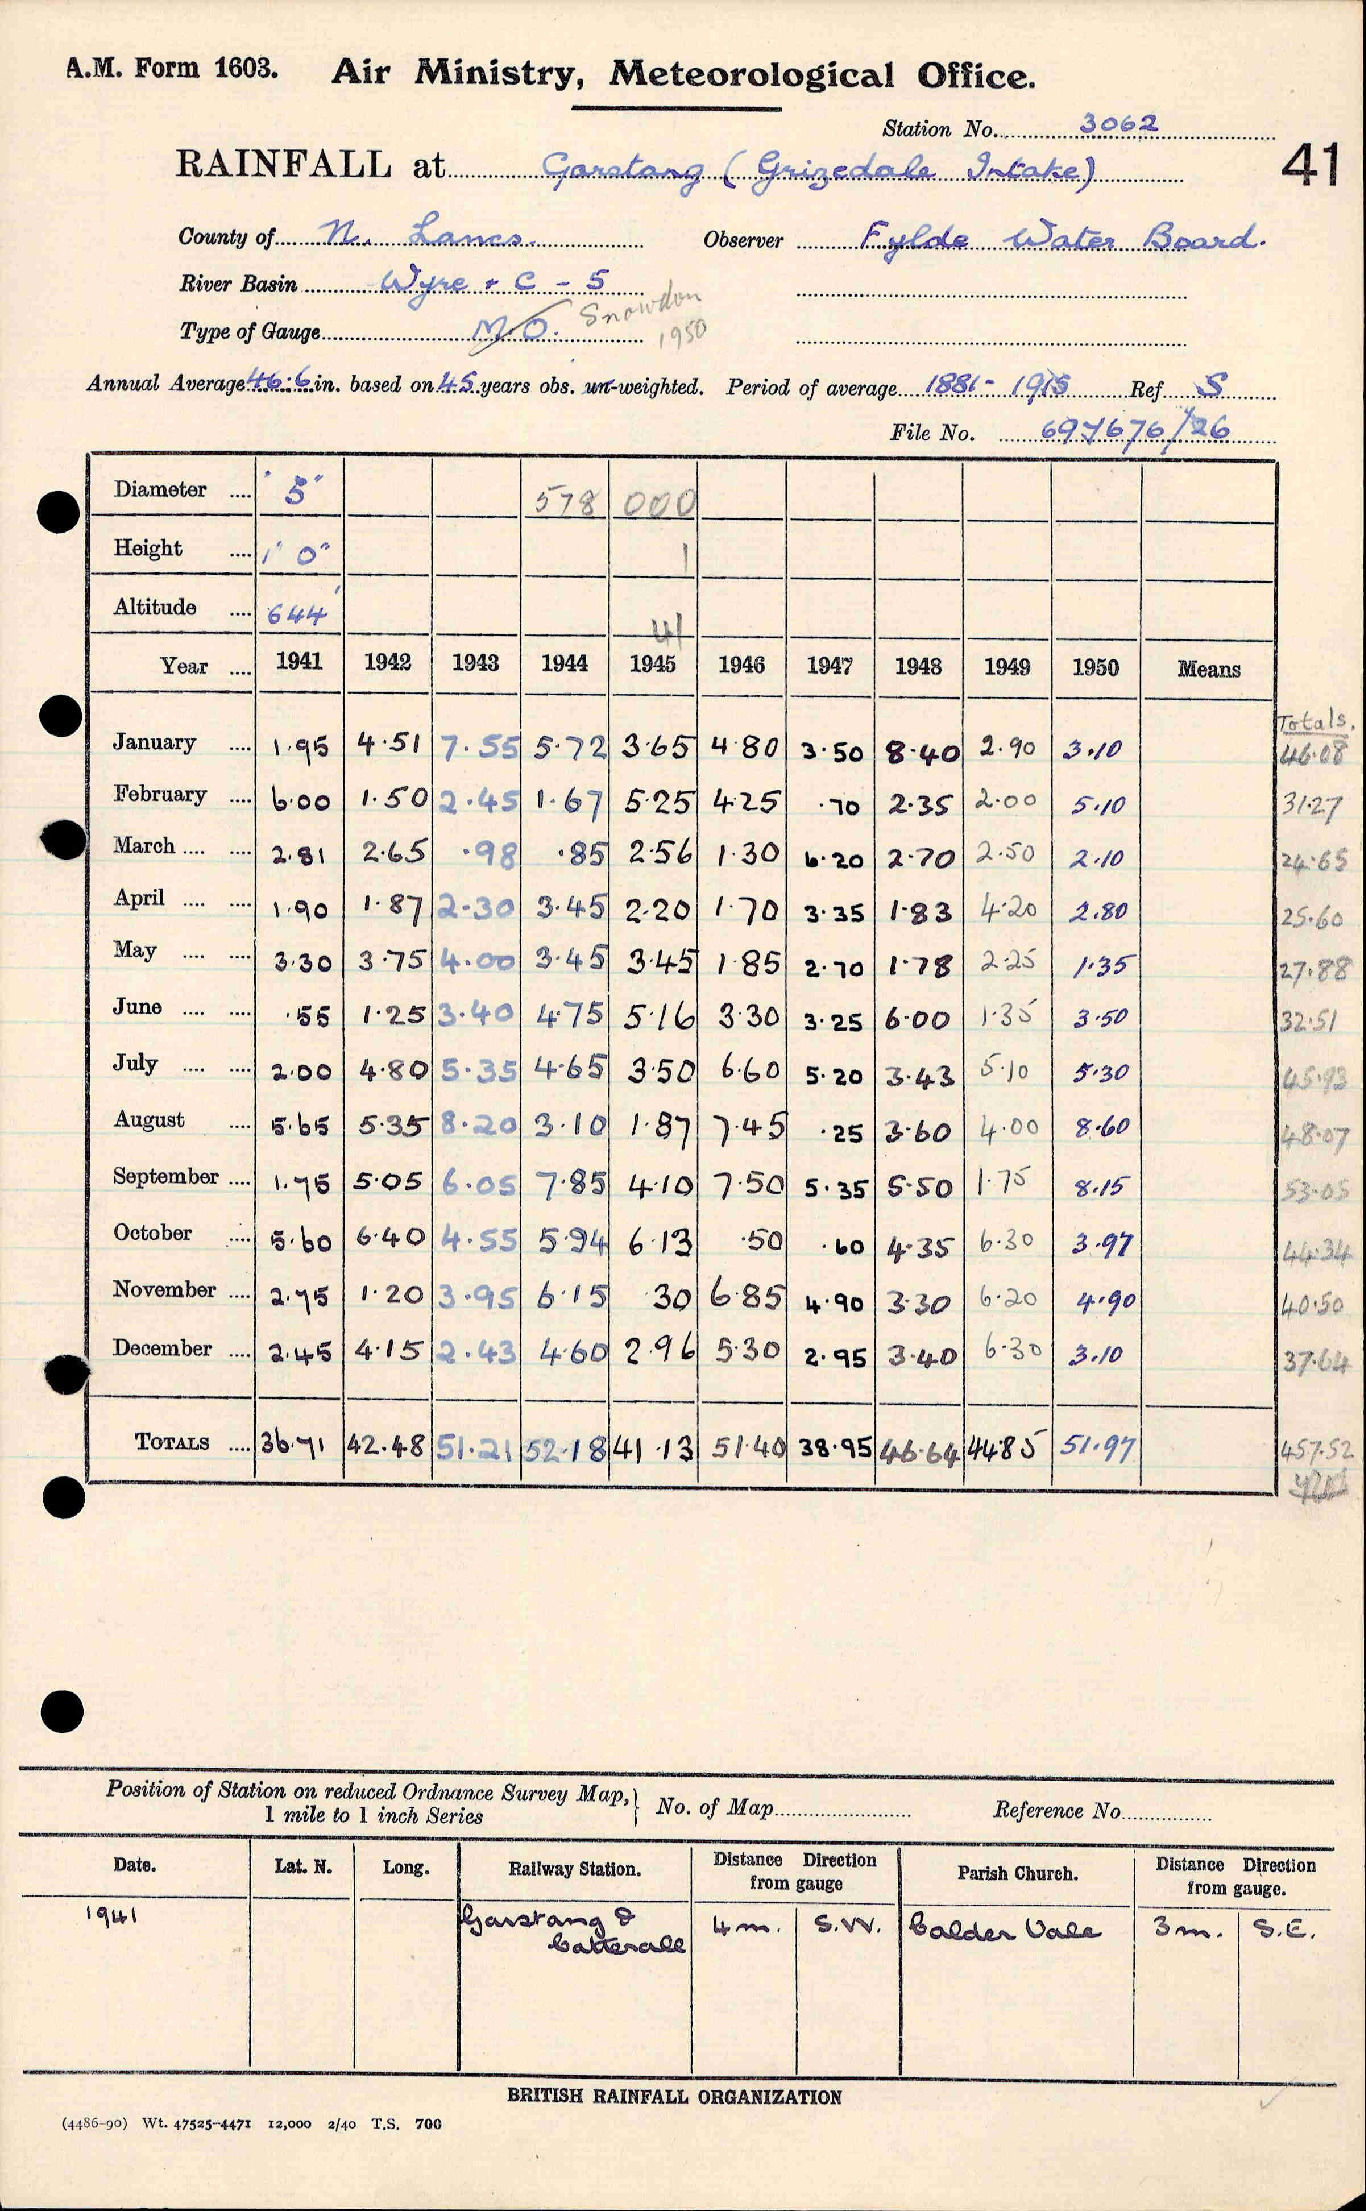 A.M. Form 1603. Air Ministry, Meteorological Office.
Station No. 3062
41
RAINFALL at Garstang (Grizedale Intake)
County of N. Lancs. Observer Fylde Water Board.
River Basin Wyre + C - 5
Type of Gauge M.O. Snowdon 1950
Annual Average 46.6 in. based on 45 years obs. un-weighted. Period of average 1881-1915 Ref S
File No. 697676/26
Diameter .... 5" 578 000
Height .... 1' 0" 1
Altitude .... 644' 41
Year .... 1941 1942 1943 1944 1945 1946 1947 1948 1949 1950 Means
Totals.
January .... 1.95 4.51 7.55 5.72 3.65 4.80 3.50 8.40 2.90 3.10 46.08
February .... 6.00 1.50 2.45 1.67 5.25 4.25 .70 2.35 2.00 5.10 31.27
March .... .... 2.81 2.65 .98 .85 2.56 1.30 6.20 2.70 2.50 2.10 24.65
April .... .... 1.90 1.87 2.30 3.45 2.20 1.70 3.35 1.83 4.20 2.80 25.60
May .... .... 3.30 3.75 4.00 3.45 3.45 1.85 2.70 1.78 2.25 1.35 27.88
June .... .... .55 1.25 3.40 4.75 5.16 3.30 3.25 6.00 1.35 3.50 32.51
July .... .... 2.00 4.80 5.35 4.65 3.50 6.60 5.20 3.43 5.10 5.30 45.93
August .... 5.65 5.35 8.20 3.10 1.87 7.45 .25 3.60 4.00 8.60 48.07
September .... 1.75 5.05 6.05 7.85 4.10 7.50 5.35 5.50 1.75 8.15 53.05
October .... 5.60 6.40 4.55 5.94 6.13 .50 .60 4.35 6.30 3.97 44.34
November .... 2.75 1.20 3.95 6.15 30 6.85 4.90 3.30 6.20 4.90 40.50
December .... 2.45 4.15 2.43 4.60 2.96 5.30 2.95 3.40 6.30 3.10 37.64
TOTALS .... 36.71 42.48 51.21 52.18 41.13 51.40 38.95 46.64 44.85 51.97 457.52
Position of Station on reduced Ordnance Survey Map, 1 mile to 1 inch Series } No. of Map Reference No.
Date. Lat. N. Long. Railway Station. Distance Direction from gauge Parish Church. Distance Direction from gauge.
1941 Garstang & Catterall 4 m. S.W. Calder Vale 3 m. S.E.
BRITISH RAINFALL ORGANIZATION
(4486-90) Wt. 47525-4471 12,000 2/40 T.S. 700